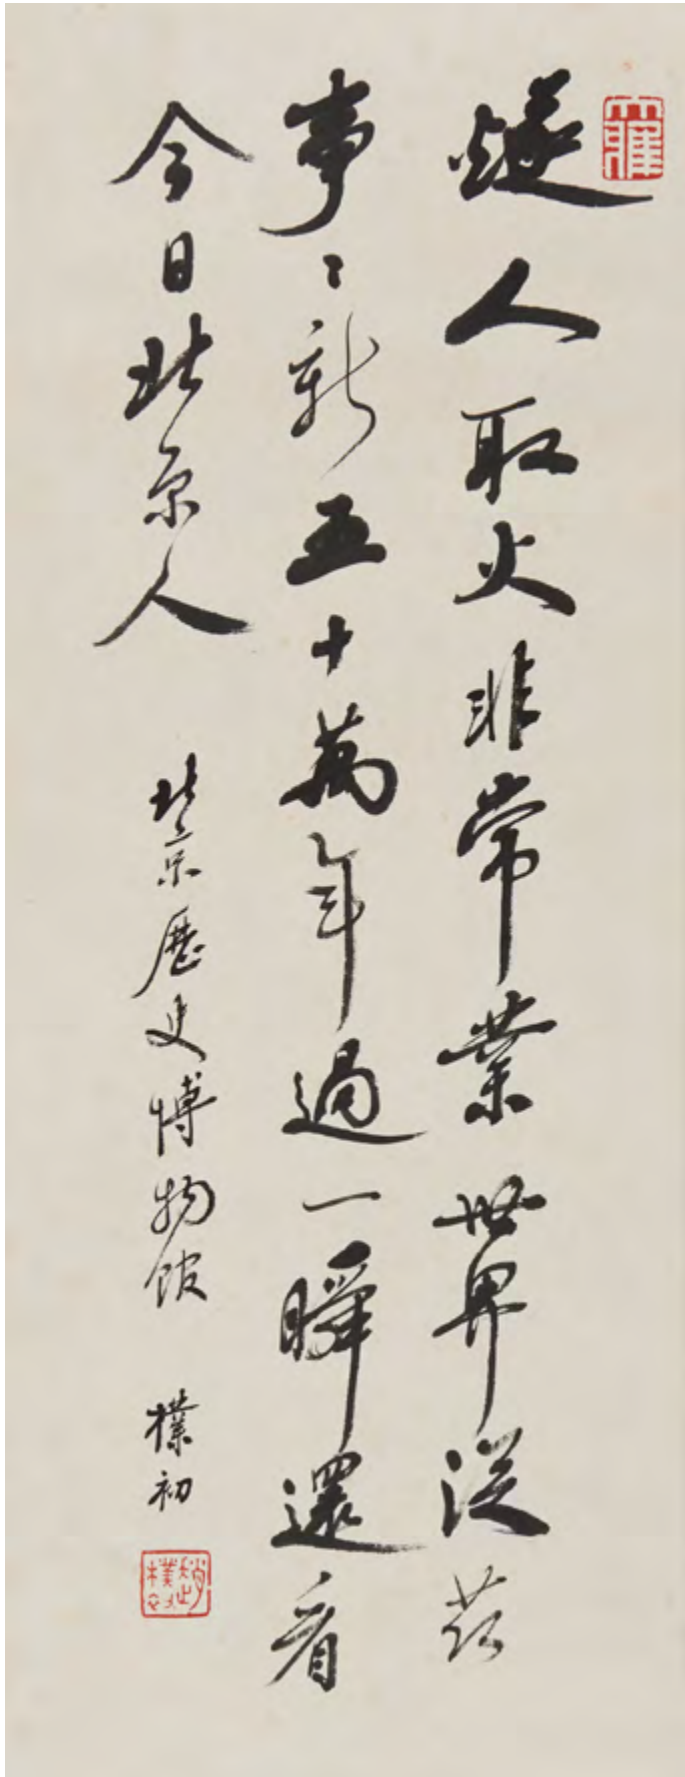 燧人取火非常業世界從茲
事〻新五十萬年過一瞬還看
今日北京人
北京歷史博物館
樸初